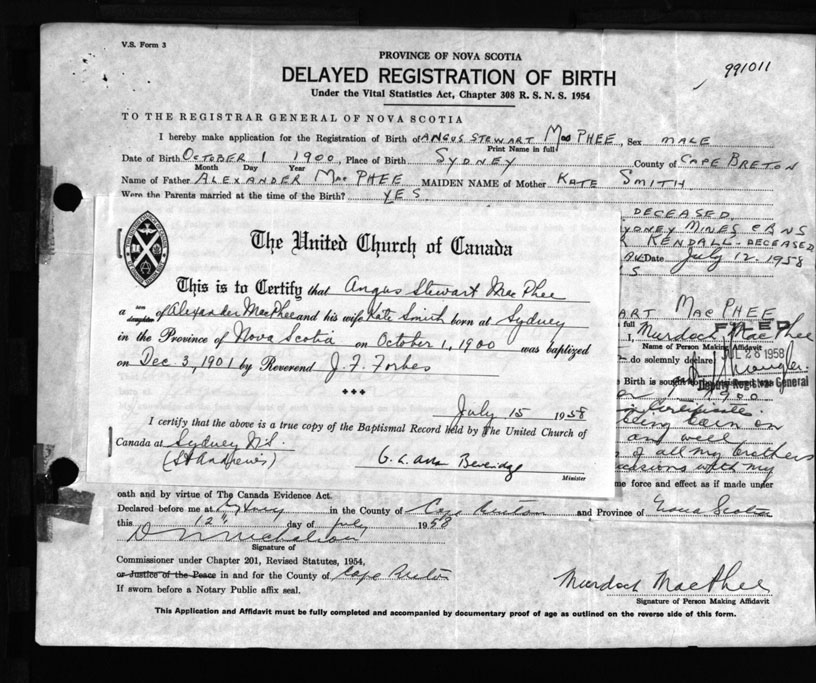 V.S. Form 3
PROVINCE OF NOVA SCOTIA
DELAYED REGISTRATION OF BIRTH
991011
Under the Vital Statistics Act, Chapter 308 R. S. N. S. 1954
TO THE REGISTRAR GENERAL OF NOVA SCOTIA
I hereby make application for the Registration of Birth of ANGUS STEWART MacPHEE, Sex MALE
Print Name in full
Date of Birth OCTOBER 1 1900, Place of Birth SYDNEY County of CAPE BRETON
Month Day Year
Name of Father ALEXANDER MacPHEE MAIDEN NAME of Mother KATE SMITH
Were the Parents married at the time of the Birth? YES
DECEASED
SYDNEY MINES
KENDALL - DECEASED
Date July 12, 1958
The United Church of Canada
This is to Certify that Angus Stewart MacPhee
a son
daughter of Alexander MacPhee and his wife Kate Smith born at Sydney
in the Province of Nova Scotia on October 1, 1900 was baptized
on Dec. 3, 1901 by Reverend J. F. Forbes
July 15 1958
I certify that the above is a true copy of the Baptismal Record held by The United Church of
Canada at Sydney N.S.
(St Andrew's)
Beveridge
Minister
ART MacPHEE
full
FILED
I, Murdoch MacPhee
Name of Person Making Affidavit
do solemnly declare
JUL 28 1958
Birth is sought
Deputy Registrar General
1900
Certificate.
being born on
and well
of all my brothers
with my
me force and effect as if made under
oath and by virtue of The Canada Evidence Act.
Declared before me at Sydney in the County of Cape Breton and Province of Nova Scotia
this 12th day of July 1958
Signature of
Commissioner under Chapter 201, Revised Statutes, 1954,
or Justice of the Peace in and for the County of Cape Breton
If sworn before a Notary Public affix seal.
Murdoch MacPhee
Signature of Person Making Affidavit
This Application and Affidavit must be fully completed and accompanied by documentary proof of age as outlined on the reverse side of this form.